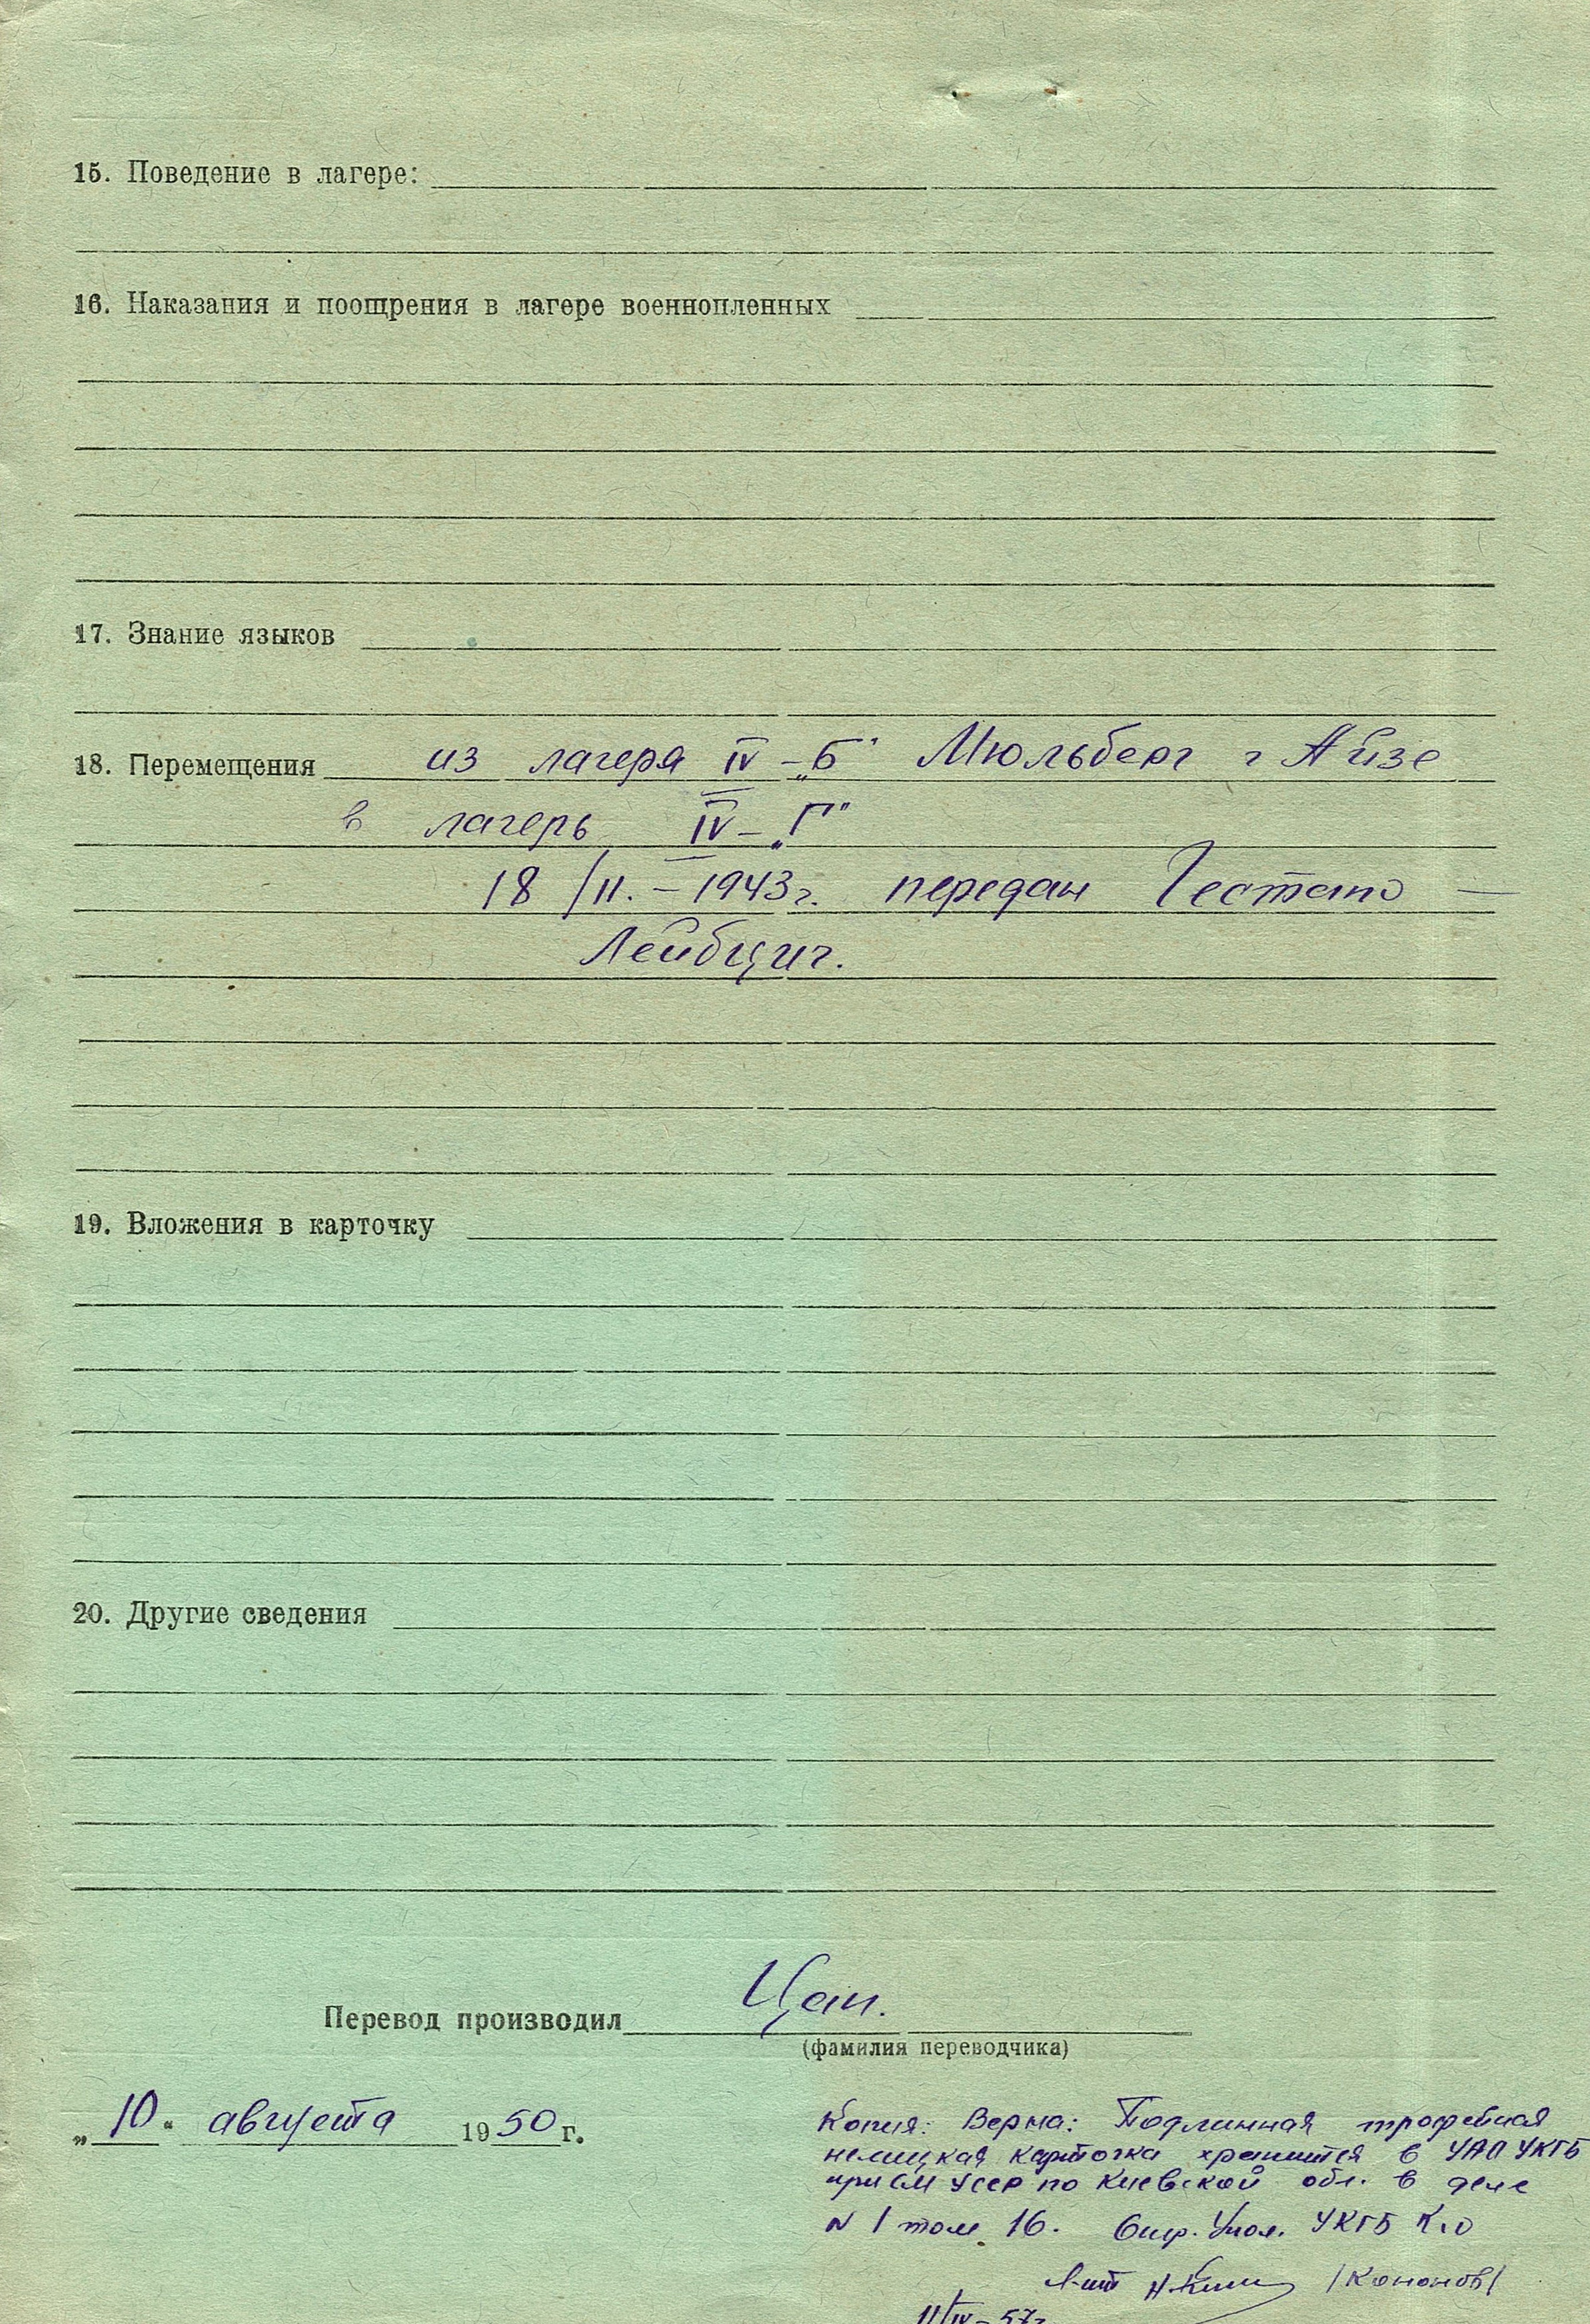 15. Поведение в лагере:
16. Наказания и поощрения в лагере военнопленных
17. Знание языков
18. Перемещения из лагеря IV-„Б" Мюльберг г Айзе
в лагерь IV-„Г"
18/II.-1943г. передан Гестапо —
Лейбциг.
19. Вложения в карточку
20. Другие сведения
Перевод производил Цап.
(фамилия переводчика)
„10" августа 1950 г.
Копия: Верна: Подлинная трофейная
немецкая карточка хранится в УАО УКГБ
при СМ УССР по Киевской обл. в деле
N 1 том 16. Опер. Упол. УКГБ К.О
л-нт /Кононов/
11/IV-57г